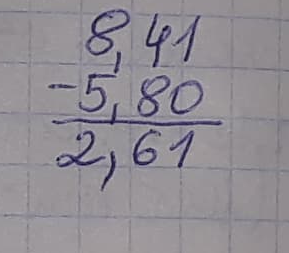 8,41
-5,80
2,61